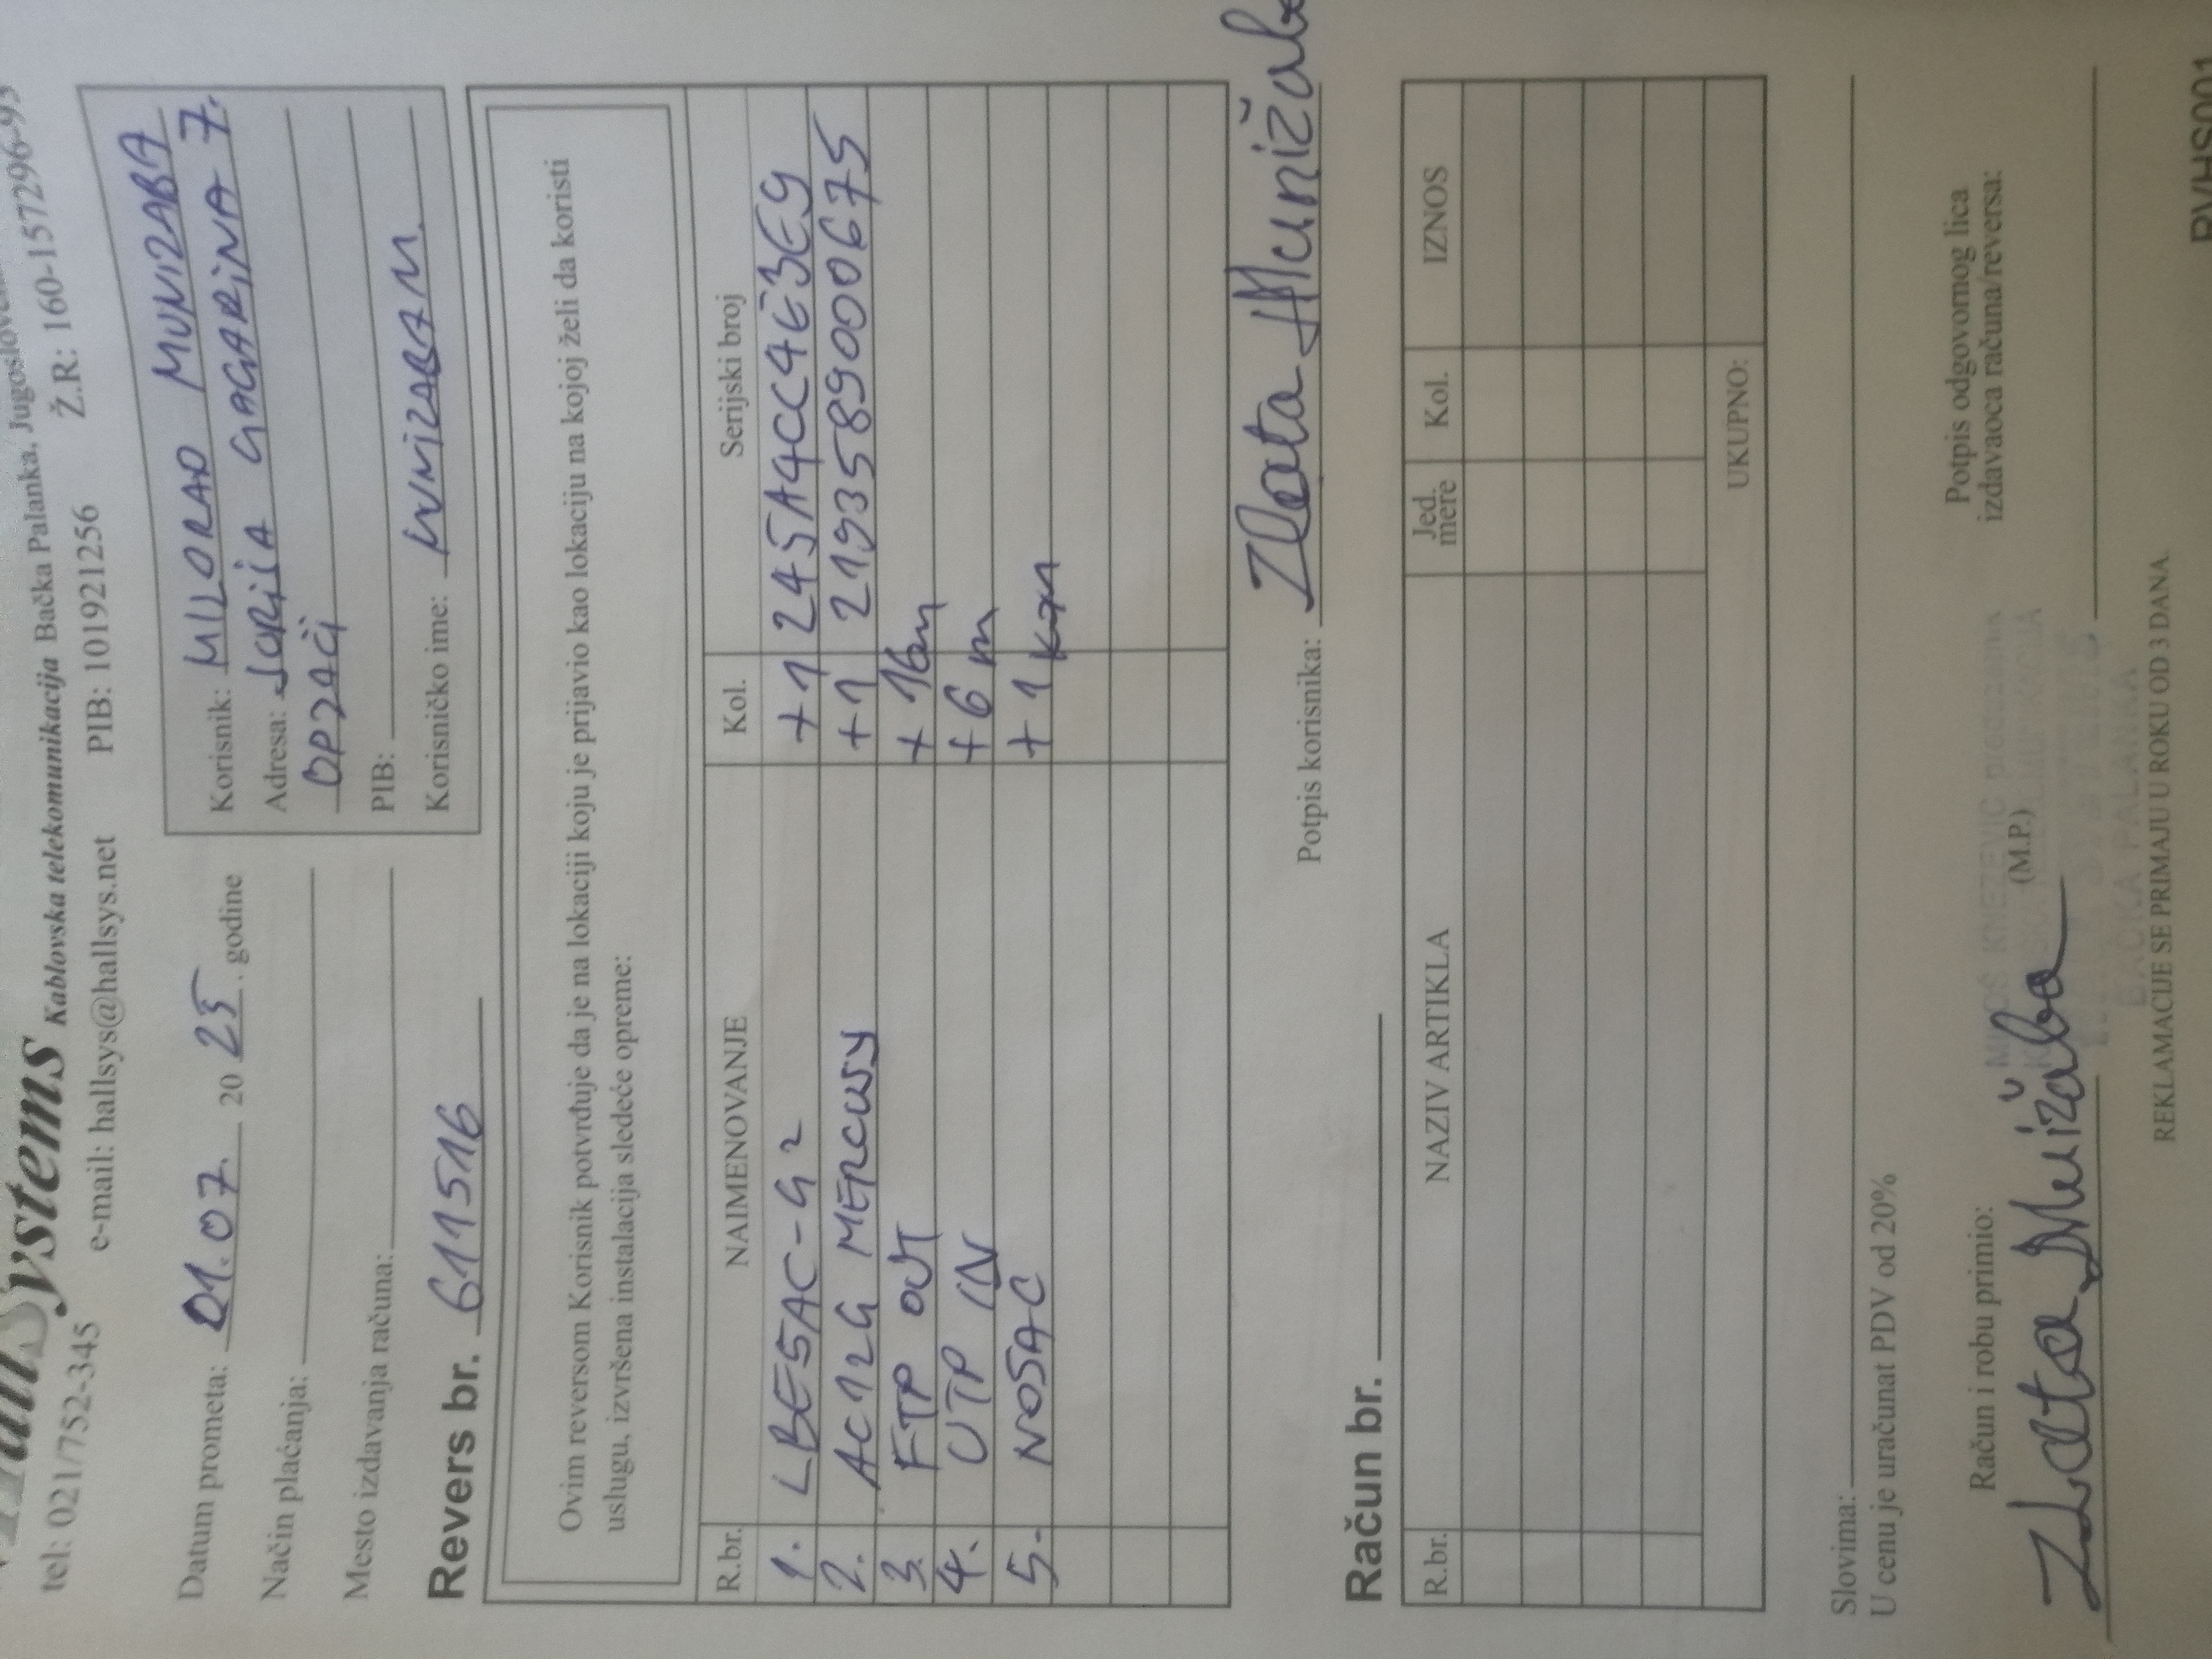 Systems Kablovska telekomunikacija Bačka Palanka,
tel: 021/752-345 e-mail: hallsys@hallsys.net PIB: 101921256 Ž.R: 160-157296-93
Datum prometa: 01.07. 20 25. godine
Način plaćanja:
Mesto izdavanja računa:
Korisnik: MILORAD MUNIZABA
Adresa: JURIJA GAGARINA 7.
OPZAČI
PIB:
Korisničko ime: MUNIZABAM
Revers br. 611516
Ovim reversom Korisnik potvrđuje da je na lokaciji koju je prijavio kao lokaciju na kojoj želi da koristi
uslugu, izvršena instalacija sledeće opreme:
R.br. NAIMENOVANJE Kol. Serijski broj
1. LBE5AC-G2 +1 245A4CC4E3E9
2. AC12G MERCUSY +1 2193589000675
3. FTP OUT + 16m
4. UTP IN + 6m
5. NOSAC + 1 kom
Potpis korisnika: Zlata Munižaba
Račun br.
R.br. NAZIV ARTIKLA Jed. mere Kol. IZNOS
UKUPNO:
Slovima:
U cenu je uračunat PDV od 20%
Račun i robu primio: (M.P.) Potpis odgovornog lica
izdavaoca računa/reversa:
Zlata Munižaba
BAČKA PALANKA
REKLAMACIJE SE PRIMAJU U ROKU OD 3 DANA